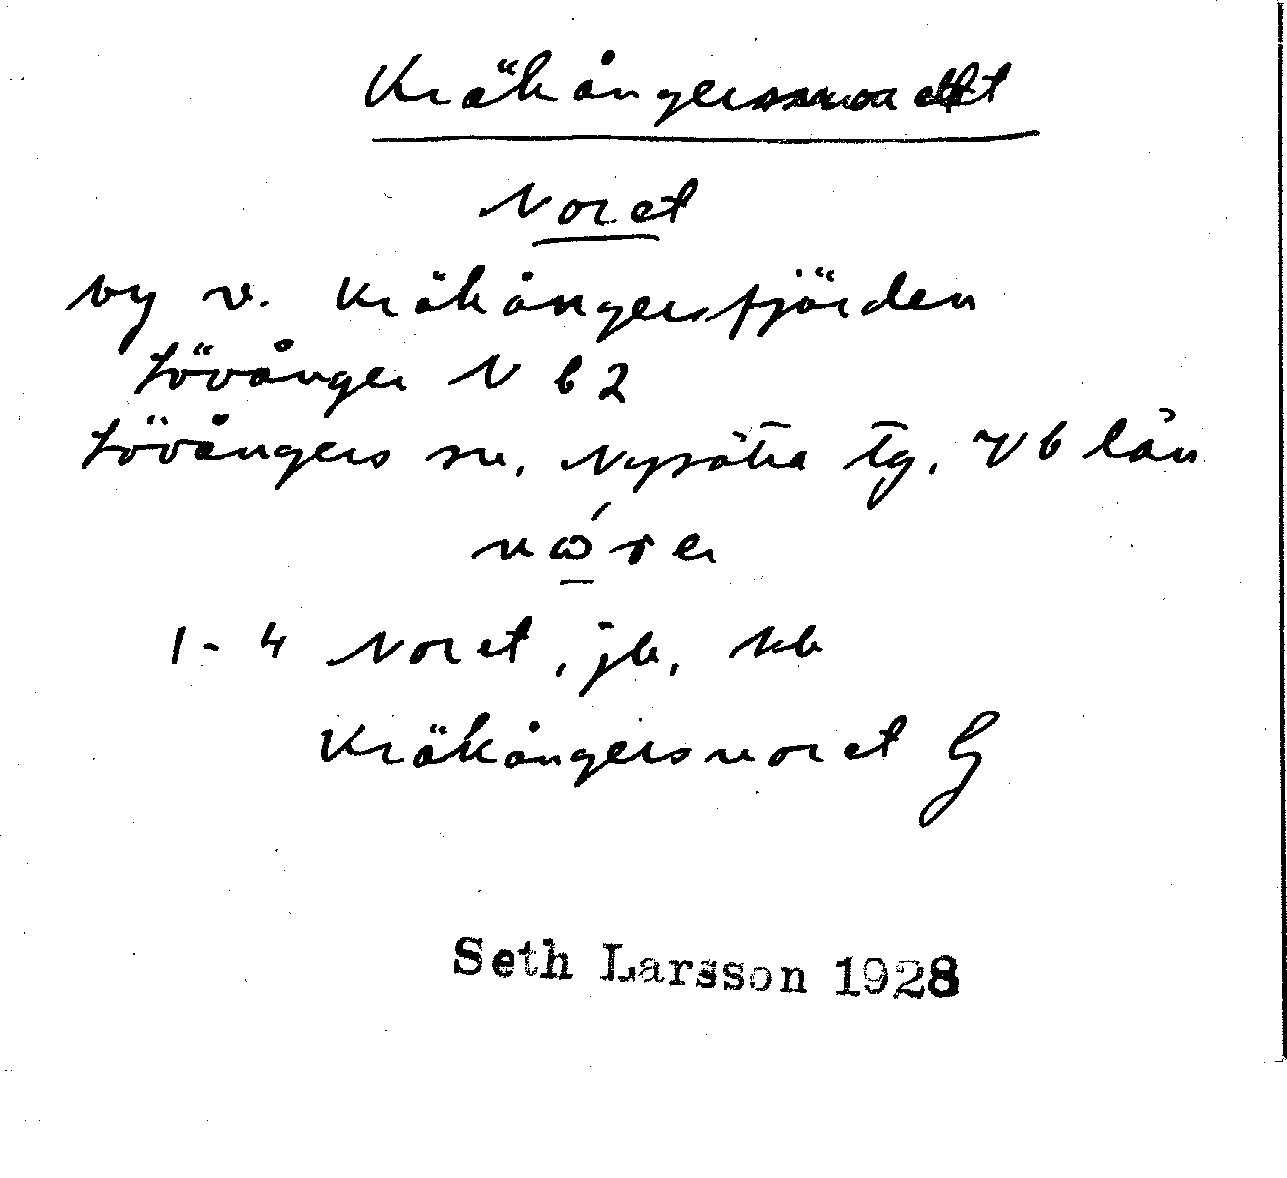 Kräkångersnoret
Noret
by v. Kräkångersfjärden
Lövånger N b 2
Lövångers sn, Nysätra tg, Vb län
1-4 Noret, jb, kb
Kräkångersnoret G
Seth Larsson 1928